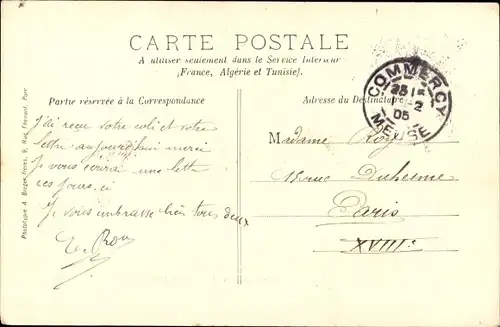 CARTE POSTALE
A utiliser seulement dans le Service Intérieur
(France, Algérie et Tunisie).
Partie réservée à la Correspondance
Adresse du Destinataire
COMMERCY
05
MEUSE
J'ai reçu votre coli et votre
lettre aujourd'hui merci
Je vous écrirai une lettre
ces jours-ci
Je vous embrasse bien tous deux
Madame
15 rue Duhesme
Paris
XVIIIe
Phototypie A. Berger frères, 9, Rue Thénard, Paris